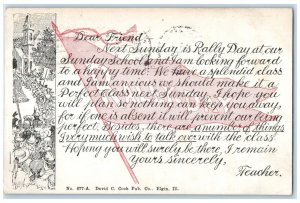 Dear Friend
Next Sunday is Rally Day at our
Sunday School and I am looking forward
to a happy time. We have a splendid class
and I am anxious we should make it a
Perfect Class next Sunday. I hope you
will plan so nothing can keep you away,
for if one is absent it will prevent our being
perfect. Besides, there are a number of things
I very much wish to talk over with the class
Hoping you will surely be there, I remain
Yours sincerely,
Teacher.
No. 677-A. David C. Cook Pub. Co., Elgin, Ill.